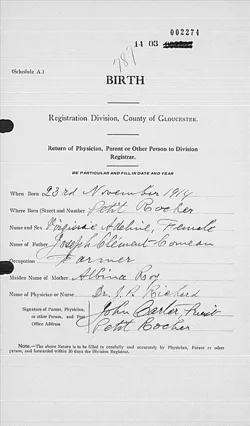 002274
14 03
787
(Schedule A.)
BIRTH
Registration Division, County of GLOUCESTER.
Return of Physician, Parent or Other Person to Division
Registrar.
BE PARTICULAR AND FILL IN DATE AND YEAR
When Born 23rd November 1914
Where Born (Street and Number Petit Rocher
Name and Sex Virginie Adeline, Female
Name of Father Joseph Clément Comeau
Occupation Farmer
Maiden Name of Mother Albina Roy
Name of Physician or Nurse Dr. J. P. Richard
Signature of Parent, Physician, John Carter Priest
or other Person, and Post
Office Address Petit Rocher
NOTE.—The above Return is to be filled in carefully and accurately by Physician, Parent or other
person, and forwarded within 30 days the Division Registrar.